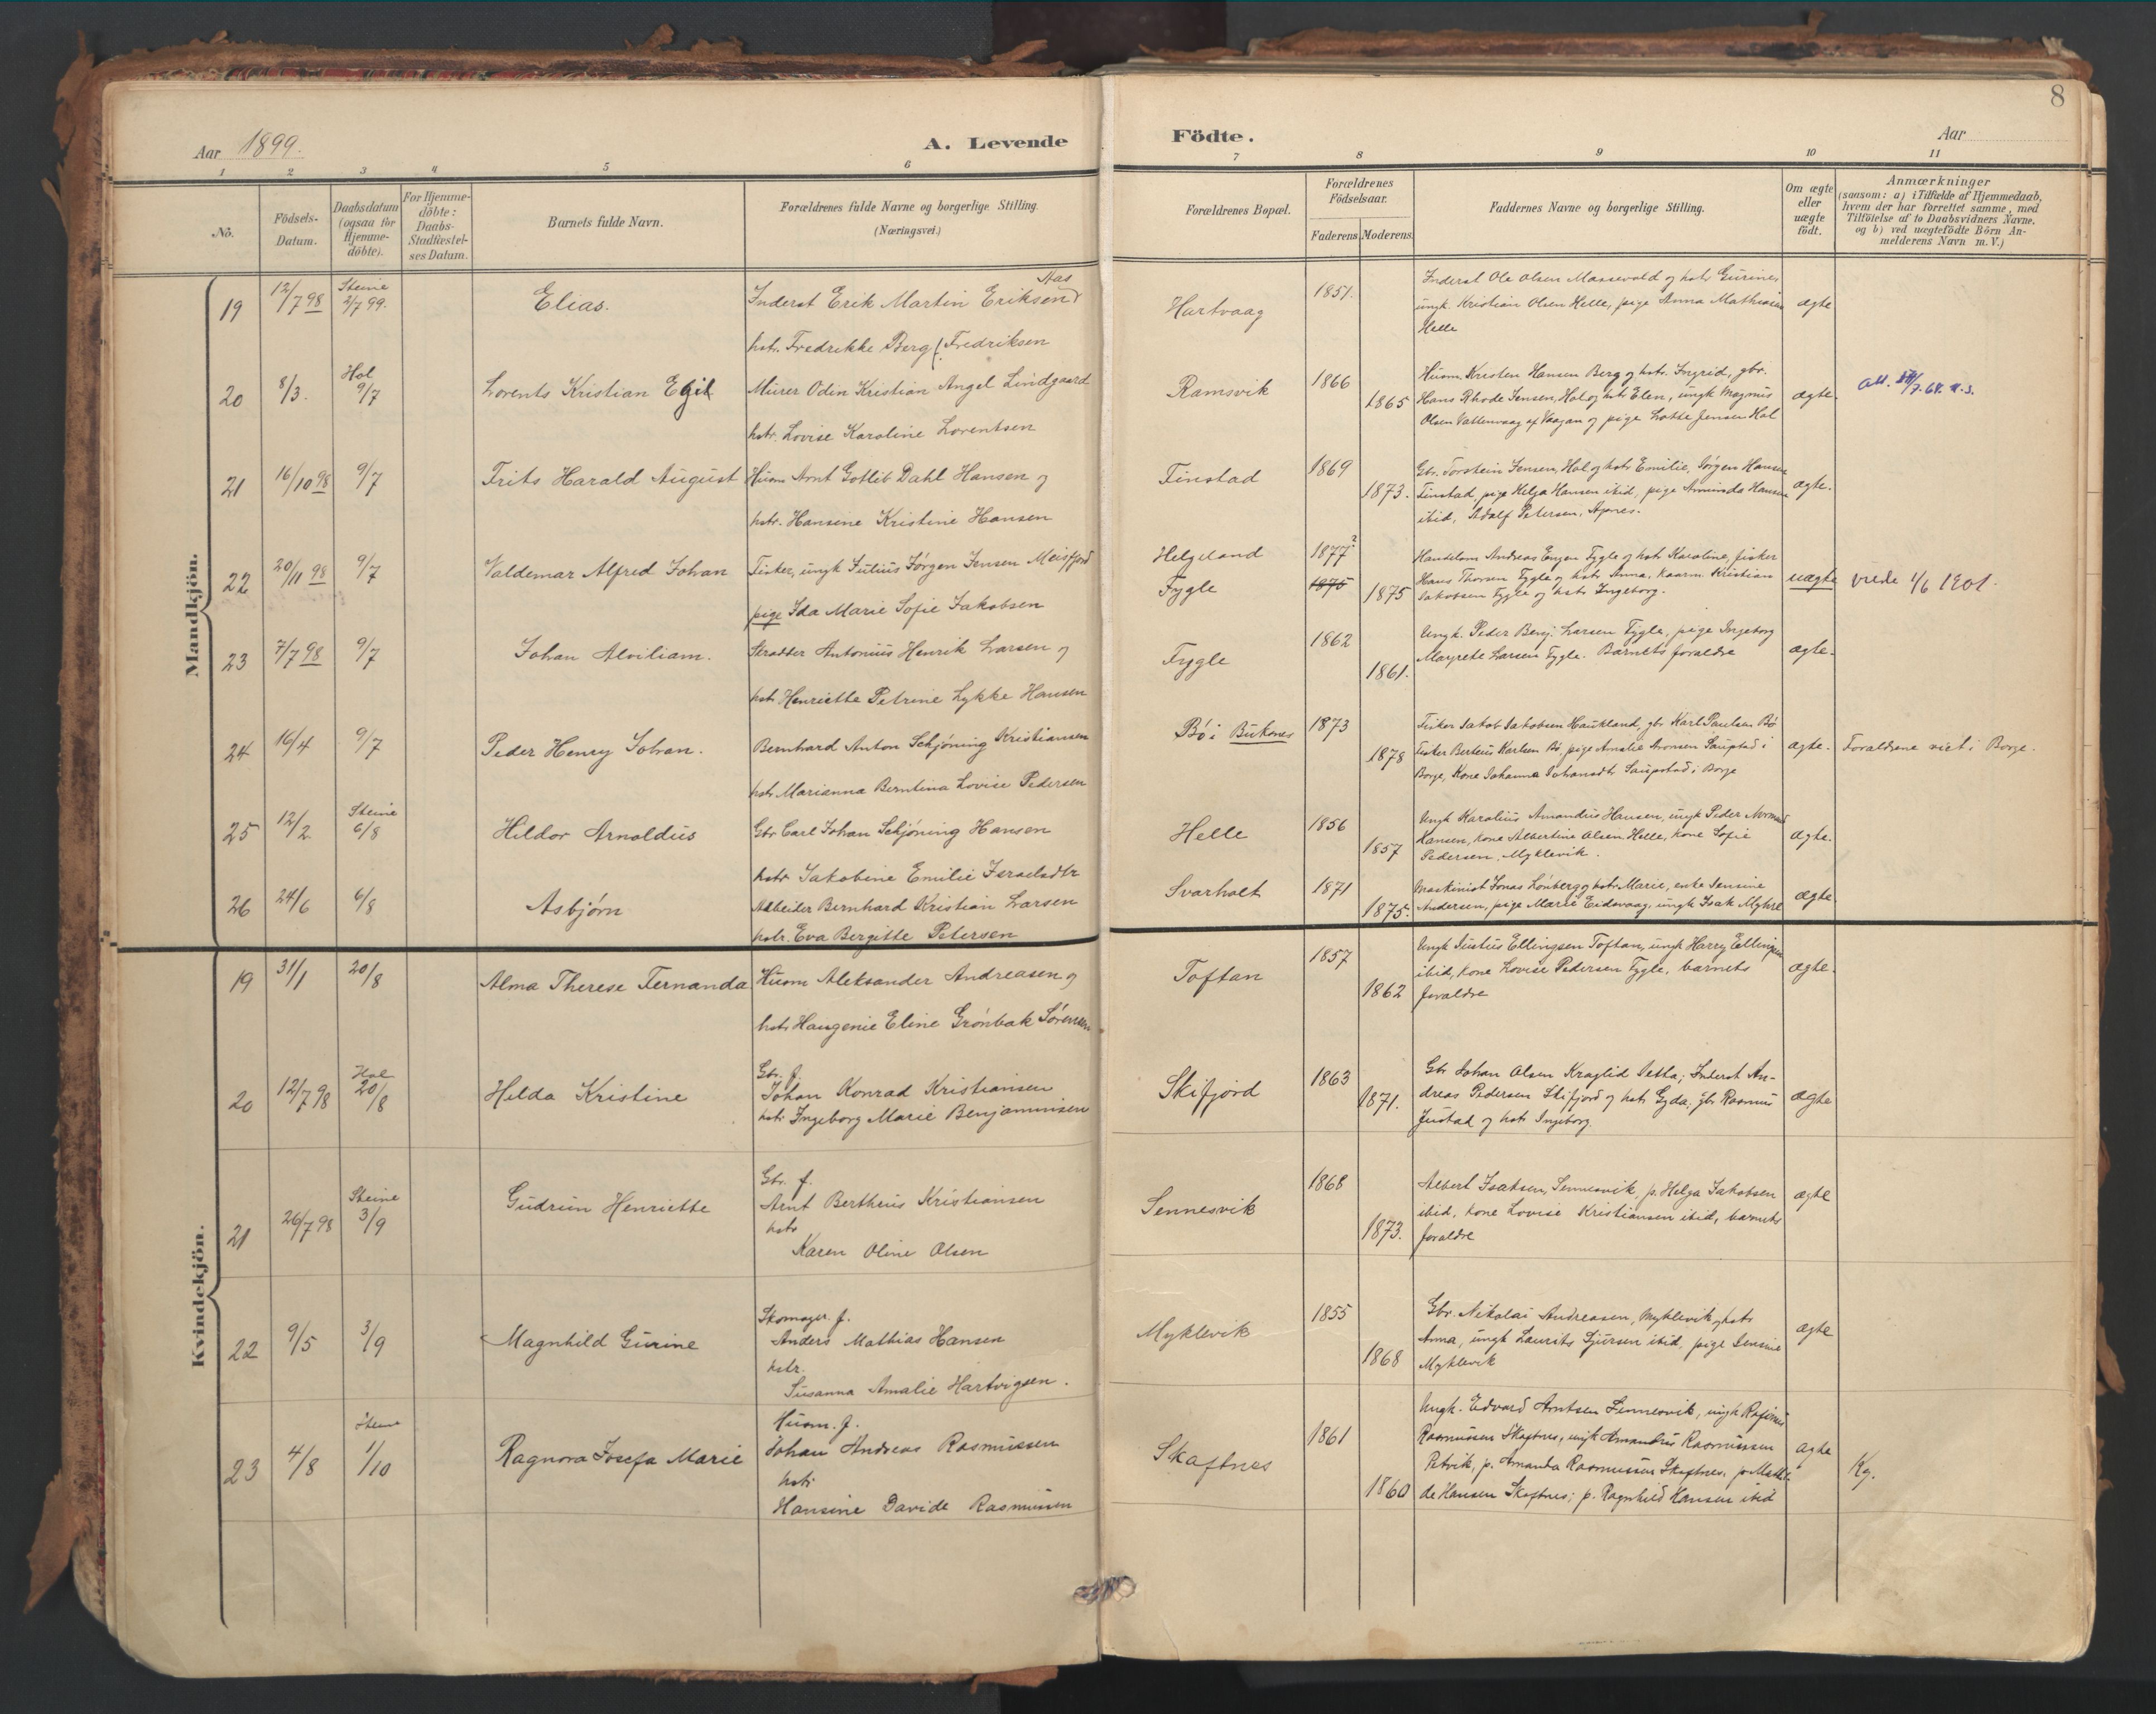 8
Aar 1899.
A. Levende Födte.
Aar
1 2 3 4 5 6 7 8 9 10 11
No.
Födsels-Datum.
Daabsdatum (ogsaa for Hjemme-döbte).
For Hjemme-döbte: Daabs-Stadfæstel-ses Datum.
Barnets fulde Navn.
Forældrenes fulde Navne og borgerlige Stilling. (Næringsvei.)
Forældrenes Bopæl.
Forældrenes Födselsaar.
Faderens Moderens.
Faddernes Navne og borgerlige Stilling.
Om ægte eller uægte født.
Anmærkninger
(saasom: a) i Tilfælde af Hjemmedaab, hvem der har forrettet samme, med Tilföielse af to Daabsvidners Navne, og b) ved uægtefödte Börn An-melderens Navn m. V.)
Mandkjön.
19 12/7 98 Steine 2/7 99. Elias.
Inderst Erik Martin Eriksen Aas
hstr. Fredrikke Berg (Fredriksen
Hartvaag 1851.
Inderst Ole Olsen Massevold og hstr Gurine,
ungk. Kristian Olsen Helle, pige Anna Mathisen
Helle
ægte
20 8/3. Hol 9/7 Lorents Kristian Egil
Murer Odin Kristian Angel Lindgaard
hstr. Lovise Karoline Lorentsen
Ramsvik 1866 1865
Husm. Kristen Hansen Berg og hstr. Ingrid, gbr.
Hans Rhode Jensen, Hol og hstr Elen, ungk Magnus
Olsen Vattenvaag af Vaagan og pige Lotte Jensen Hol
ægte.
21 16/10 98 9/7 Frits Harald August
Husm Arnt Gotlib Dahl Hansen og
hstr. Hansine Kristine Hansen
Finstad 1869 1873.
Gbr. Torstein Jensen, Hol og hstr Emilie, Jørgen Hansen
Finstad, pige Helga Hansen ibid, pige Aminda Hansen
ibid, Adolf Petersen, Agnes.
ægte.
22 20/11 98 9/7 Valdemar Alfred Johan
Fisker, ungk Julius Jørgen Jensen Meisfjord
pige Ida Marie Sofie Jakobsen
Helgeland 1877?
Fygle 1875 1875
Handelsm Andreas Engen Fygle og hstr Karoline, fisker
Hans Thorsen Fygle og hstr Anna, Kaarm. Kristian
Jakobsen Fygle og hstr Ingeborg.
uægte
viede 1/6 1901.
23 7/7 98 9/7 Johan Alviliam.
Skrædder Antonius Henrik Larsen og
hstr Henriette Petrine Lykke Hansen
Fygle 1862 1861.
Ungk. Peder Benj. Larsen Fygle, pige Ingeborg
Magrete Larsen Fygle. Barnets forældre
ægte.
24 16/4 9/7 Peder Henry Johan.
Bernhard Anton Schjöning Kristiansen
hstr. Marianna Berntina Lovise Pedersen
Bö i Buksnes 1873 1878
Fisker Jakob Jakobsen Haukland, gbr Karl Paulsen Bö
Fisker Berteus Karlsen Bö, pige Amalie Aronsen Saupstad i
Borge, Kone Johanna Johansdtr Saupstad i Borge
ægte.
Forældrene viet i Borge.
25 12/2 Steine 6/8 Hildor Arnoldus
Gbr Carl Johan Schjöning Hansen
hstr Jakobine Emilie Israelsdtr
Helle 1856 1857
Ungk Karolius Amandus Hansen, ungk Peder Normand
Hansen, kone Albertine Olsen Helle, kone Sofie
Pedersen, Myklevik.
ægte.
26 24/6 6/8 Asbjørn
Arbeider Bernhard Kristian Larsen
hstr. Eva Bergitte Petersen
Svarholt 1871 1875.
Maskinist Jonas Lönberg og hstr Marie, enke Jensine
Andersen, pige Marie Eidsvaag, ungk Isak Myhre
ægte
Kvindekjön.
19 31/1 20/8 Alma Therese Fernanda
Husm Aleksander Andreasen og
hstr Haugenie Eline Grönbæk Sörensen
Toftan 1857 1862
Ungk Justus Ellingsen Toftan, ungk Harry Ellingsen
ibid, kone Lovise Pedersen Fygle, barnets
forældre
ægte.
20 12/7 98 Hol 20/8 Hilda Kristine
Gbr. f.
Johan Konrad Kristiansen
hstr Ingeborg Marie Benjaminsen
Skifjord 1863 1871.
Gbr Johan Olsen Kraglid Petla; Inderst An-
dreas Pedersen Skifjord og hstr Gyda; gbr Rasmus
Justad og hstr Ingeborg.
ægte
21 26/7 98 Steine 3/9 Gudrun Henriette
Gbr. f.
Arnt Bertheus Kristiansen
hstr
Karen Oline Olsen
Sennesvik 1868 1873.
Albert Isaksen, Sennesvik, p. Helga Jakobsen
ibid, kone Lovise Kristiansen ibid, barnets
forældre
ægte
22 9/5 3/9 Magnhild Gurine
Skomager. f.
Anders Mathias Hansen
hstr.
Susanna Amalie Hartvigsen.
Myklevik 1855 1868
Gbr. Nikolai Andreasen, Myklevik og hstr
Anna, ungk Laurits Sjursen ibid, pige Jensine
Myklevik
ægte
23 4/8 Steine 1/10 Ragnora Josefa Marie
Husm. f.
Johan Andreas Rasmussen
hstr
Hansine Davide Rasmussen
Skaftnes 1861 1860
Ungk. Edvard Arntsen Sennesvik, ungk Rafinus
Rasmussen Skaftnes, ungk Amandus Rasmussen
Petvik, p. Amanda Rasmussen Skaftnes, p. Mathil-
de Hansen Skaftnes; p. Ragnhild Hansen ibid
ægte
Kg.